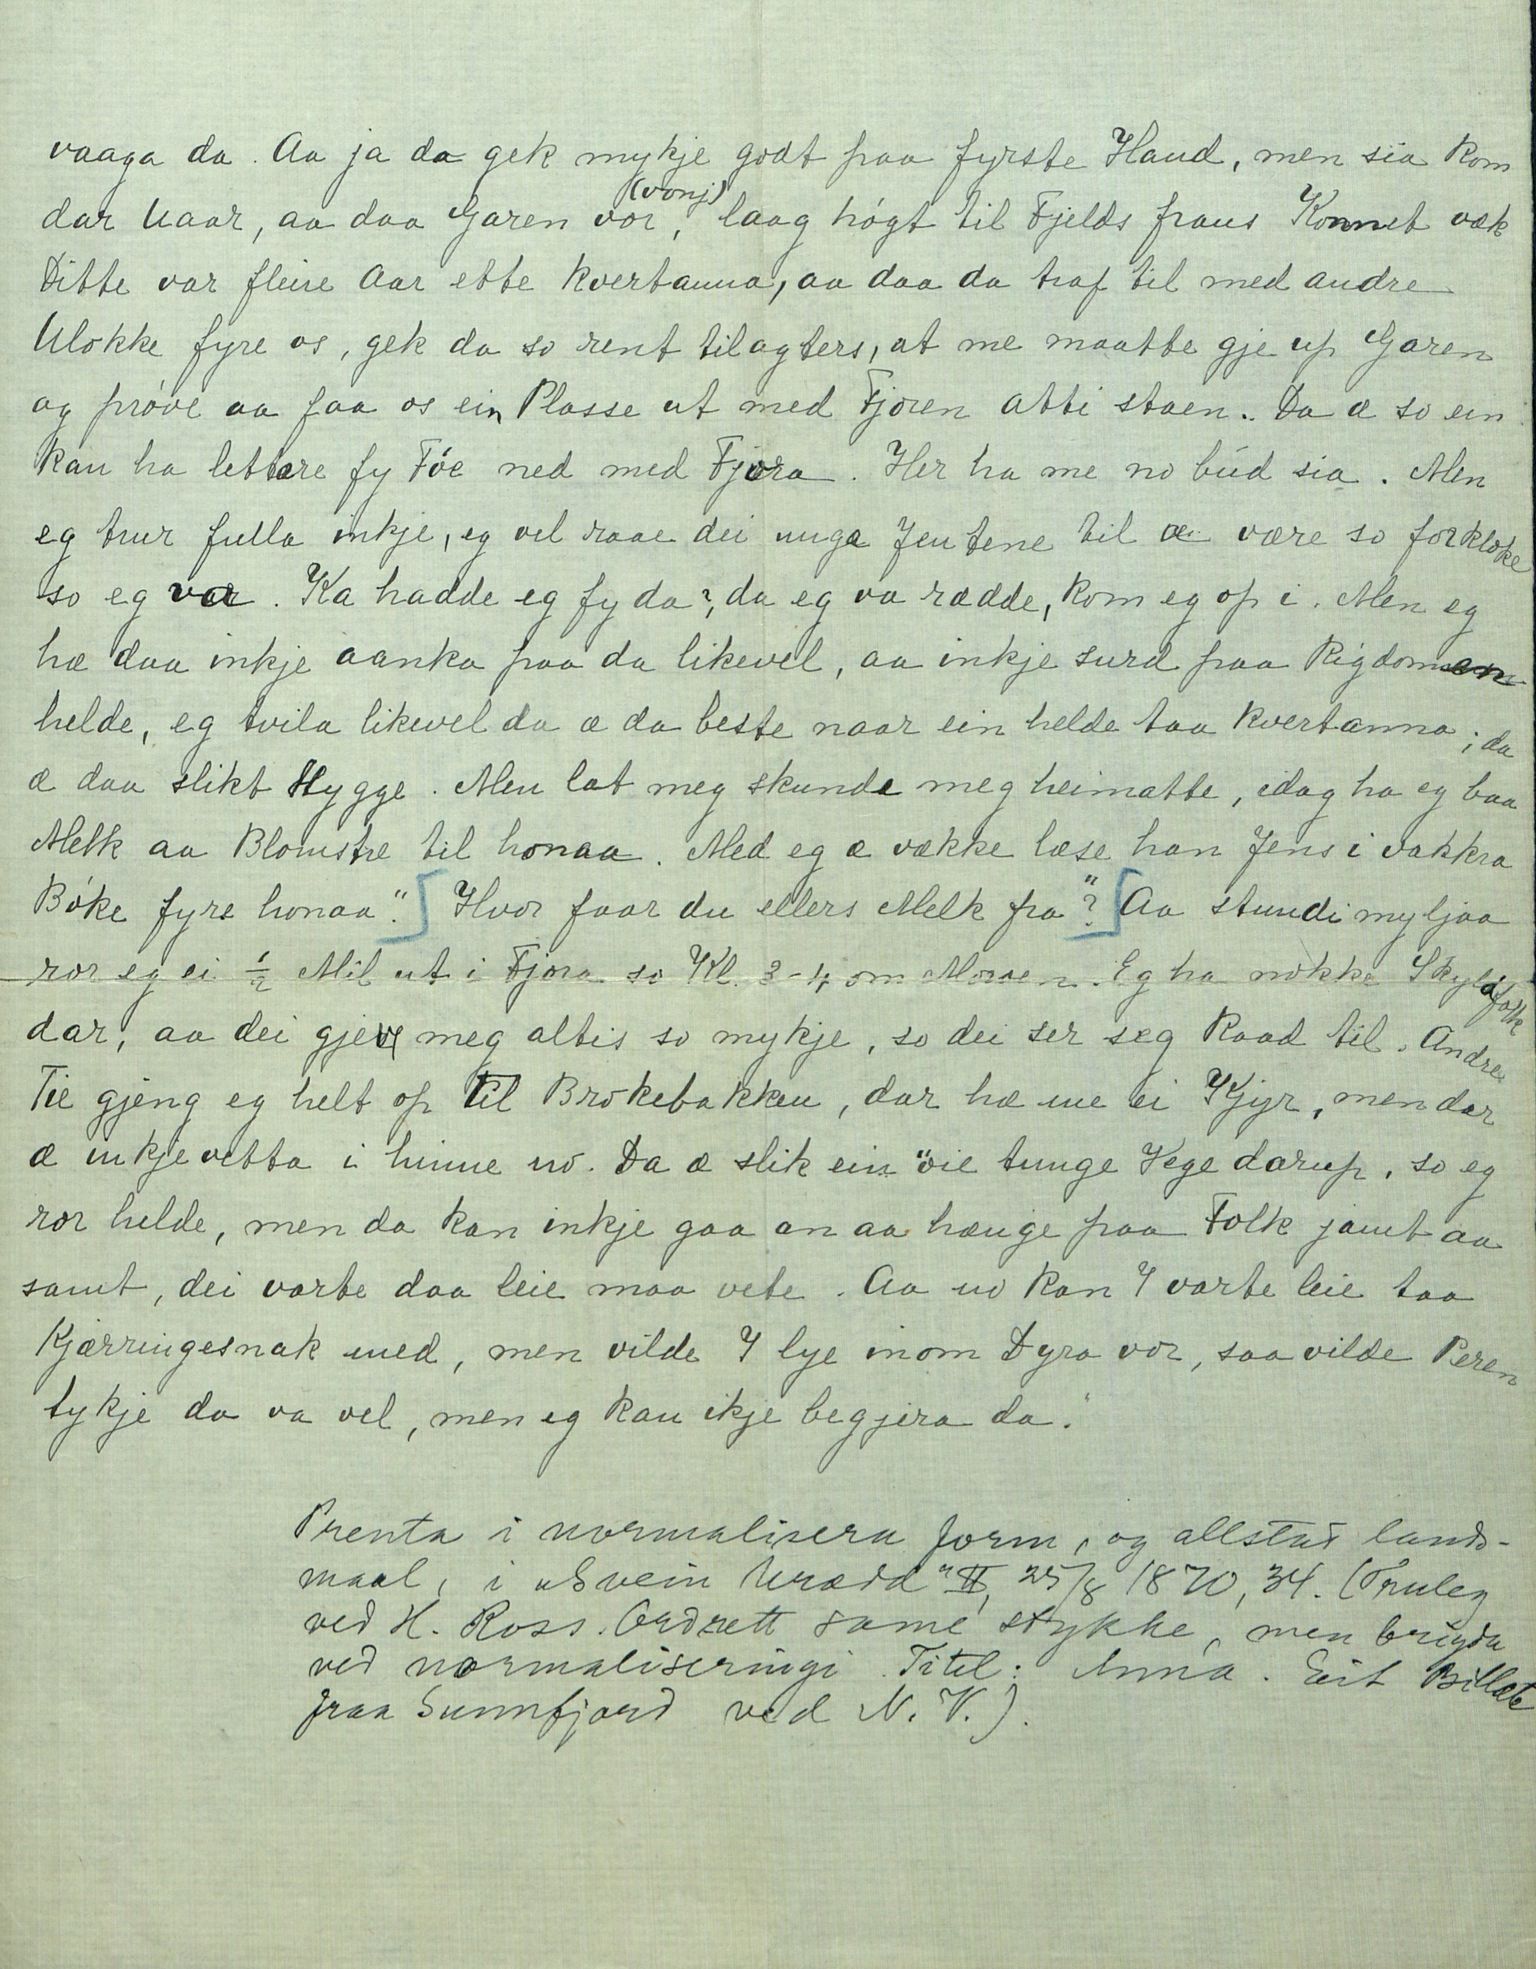 vaaga da. Aa ja da gek mykje godt paa fyrste Haand, men sia kom
dar Uaar, aa daa Garen vor, (vonj) laag högt til Fjelds fraus Konnet væk
Ditte var fleire Aar ette kvertanna, aa daa da traf til med andre
Ulokke fyre os, gek da so rent tilagters, at me maatte gje up Garen
og pröve aa faa os ein Plasse ut med Fjoren atti staen. Da æ so ein
kan ha lettare fy Föe ned med Fjora. Her ha me no búd sia. Men
eg trur fulla inkje, eg vel raae dei unga Jentene til æ være so forkloke
so eg var. Ka hadde eg fy da?, da eg va rædde, kom eg op i. Men eg
hæ daa inkje aanka paa da likevel, aa inkje surd paa Rigdommen
helde, eg tvila likevel da æ da beste naar ein helde taa kvertanna; da
æ daa slikt Hygge. Men lat meg skunde meg heimatte, idag ha eg baa
Melk aa Blomstre til honaa. Med eg æ vække læse han Jens i vakkra
Böke fyre honaa". Hvor faar du ellers Melk fra"? Aa stundimyljaa
ror eg ei ½ Mil ut i Fjora so Kl. 3-4 om Moraen. Eg ha nokke Skyldfolk
dar, aa dei gjeve meg altis so mykje, so dei ser seg Raad til. Andre
Tie gjeng eg helt op til Brokebakken, dar hæ me ei Kjyr, men dar
æ inkjevetta i hinne no. Da æ slik ein öie tunge Vege darup, so eg
ror helde, men da kan inkje gaa an aa hænge paa Folk jamt aa
samt, dei varte daa leie maa vete. Aa no kan I varte leie taa
Kjærringesnak med, men vilde I lye inom Dyra vor, saa vilde Peren
tykje da va vel, men eg kan ikje begjera da."
Prenta i normalisera form, og allstad lands-
maal, i „Svein Urædd" II, 25/8 1870, 34. (Truleg
ved H. Ross. Ordrett same stykke, men brigda
ved normaliseringi. Titel: Anna. Eit Billæte
fraa Sunnfjord ved N. V.).